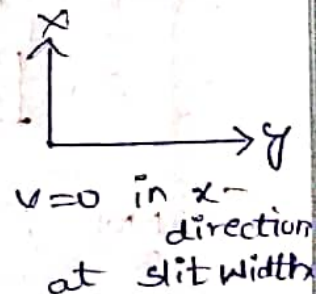 x
y
v=0 in x-
direction
at slit width